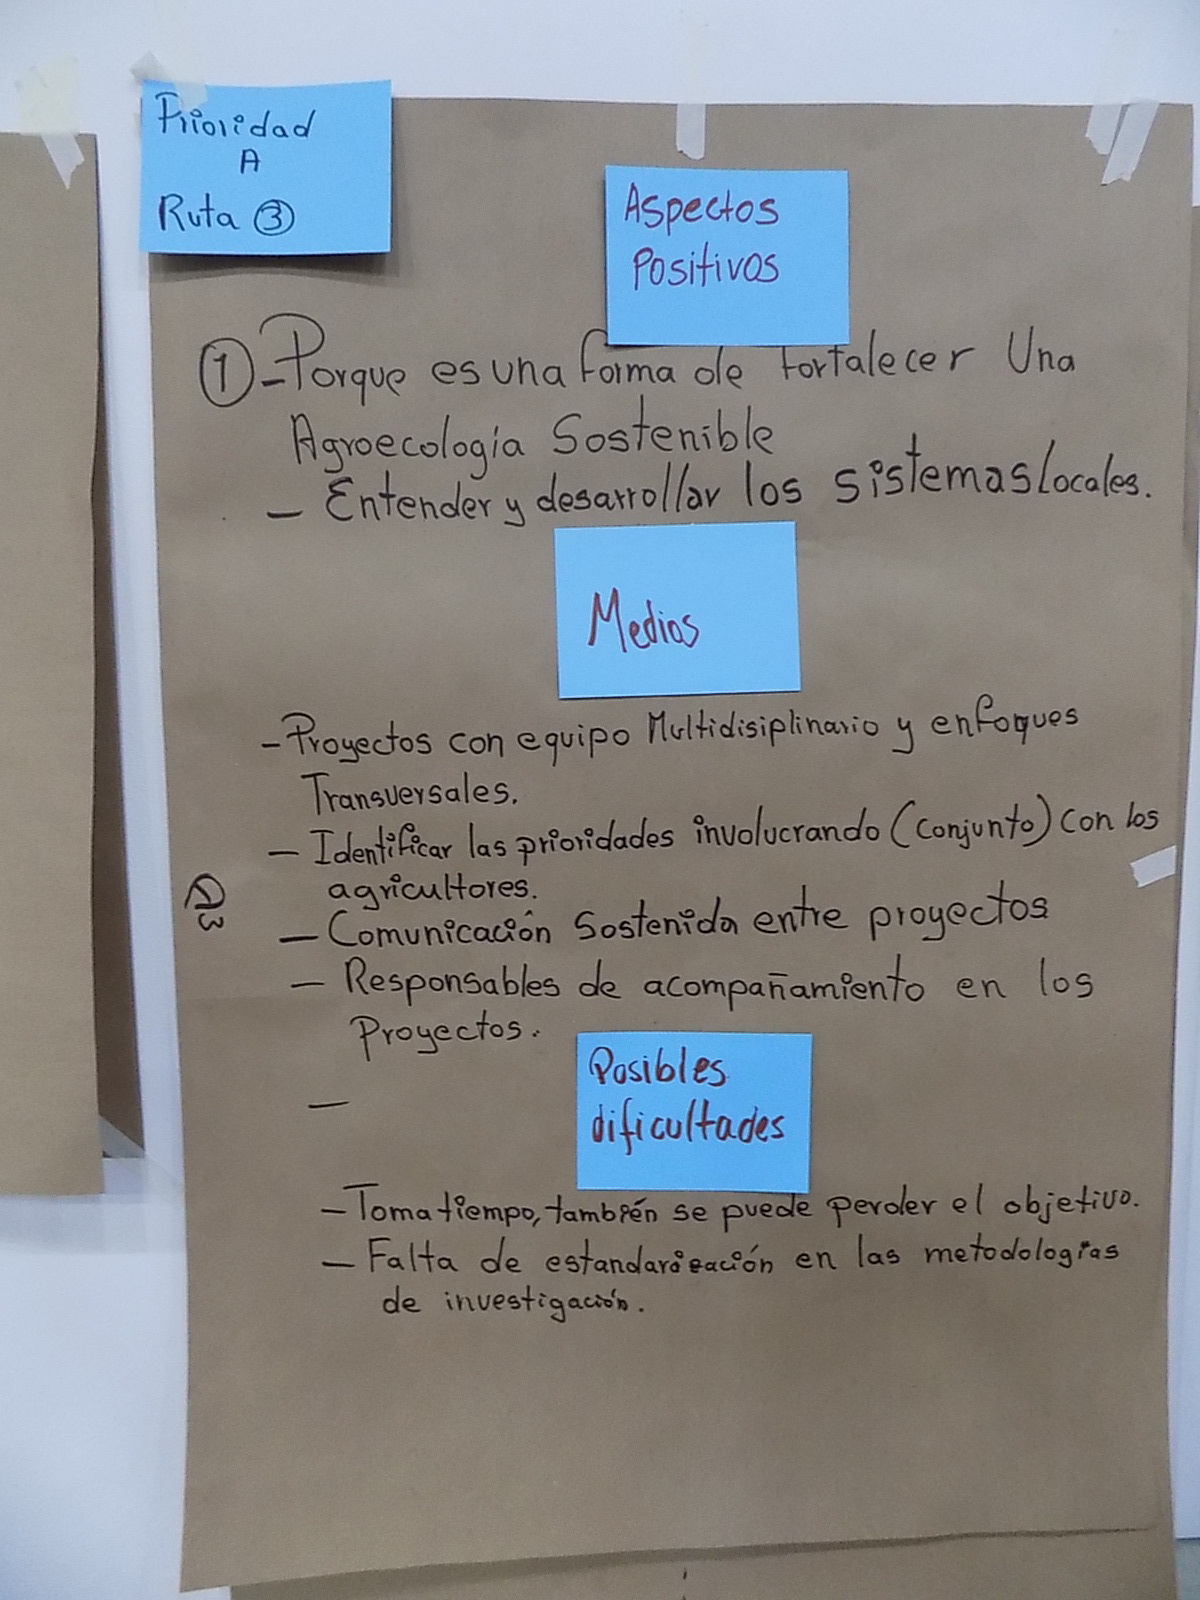 Prioridad
A
Ruta ③
Aspectos
Positivos
① - Porque es una forma de fortalecer Una
Agroecología Sostenible
- Entender y desarrollar los sistemas Locales.
Medios
- Proyectos con equipo Multidisiplinario y enfoques
Transversales.
- Identificar las prioridades involucrando (conjunto) con los
agricultores.
A3
- Comunicación Sostenida entre proyectos
- Responsables de acompañamiento en los
Proyectos.
-
Posibles
dificultades
- Toma tiempo, también se puede perder el objetivo.
- Falta de estandarización en las metodologías
de investigación.